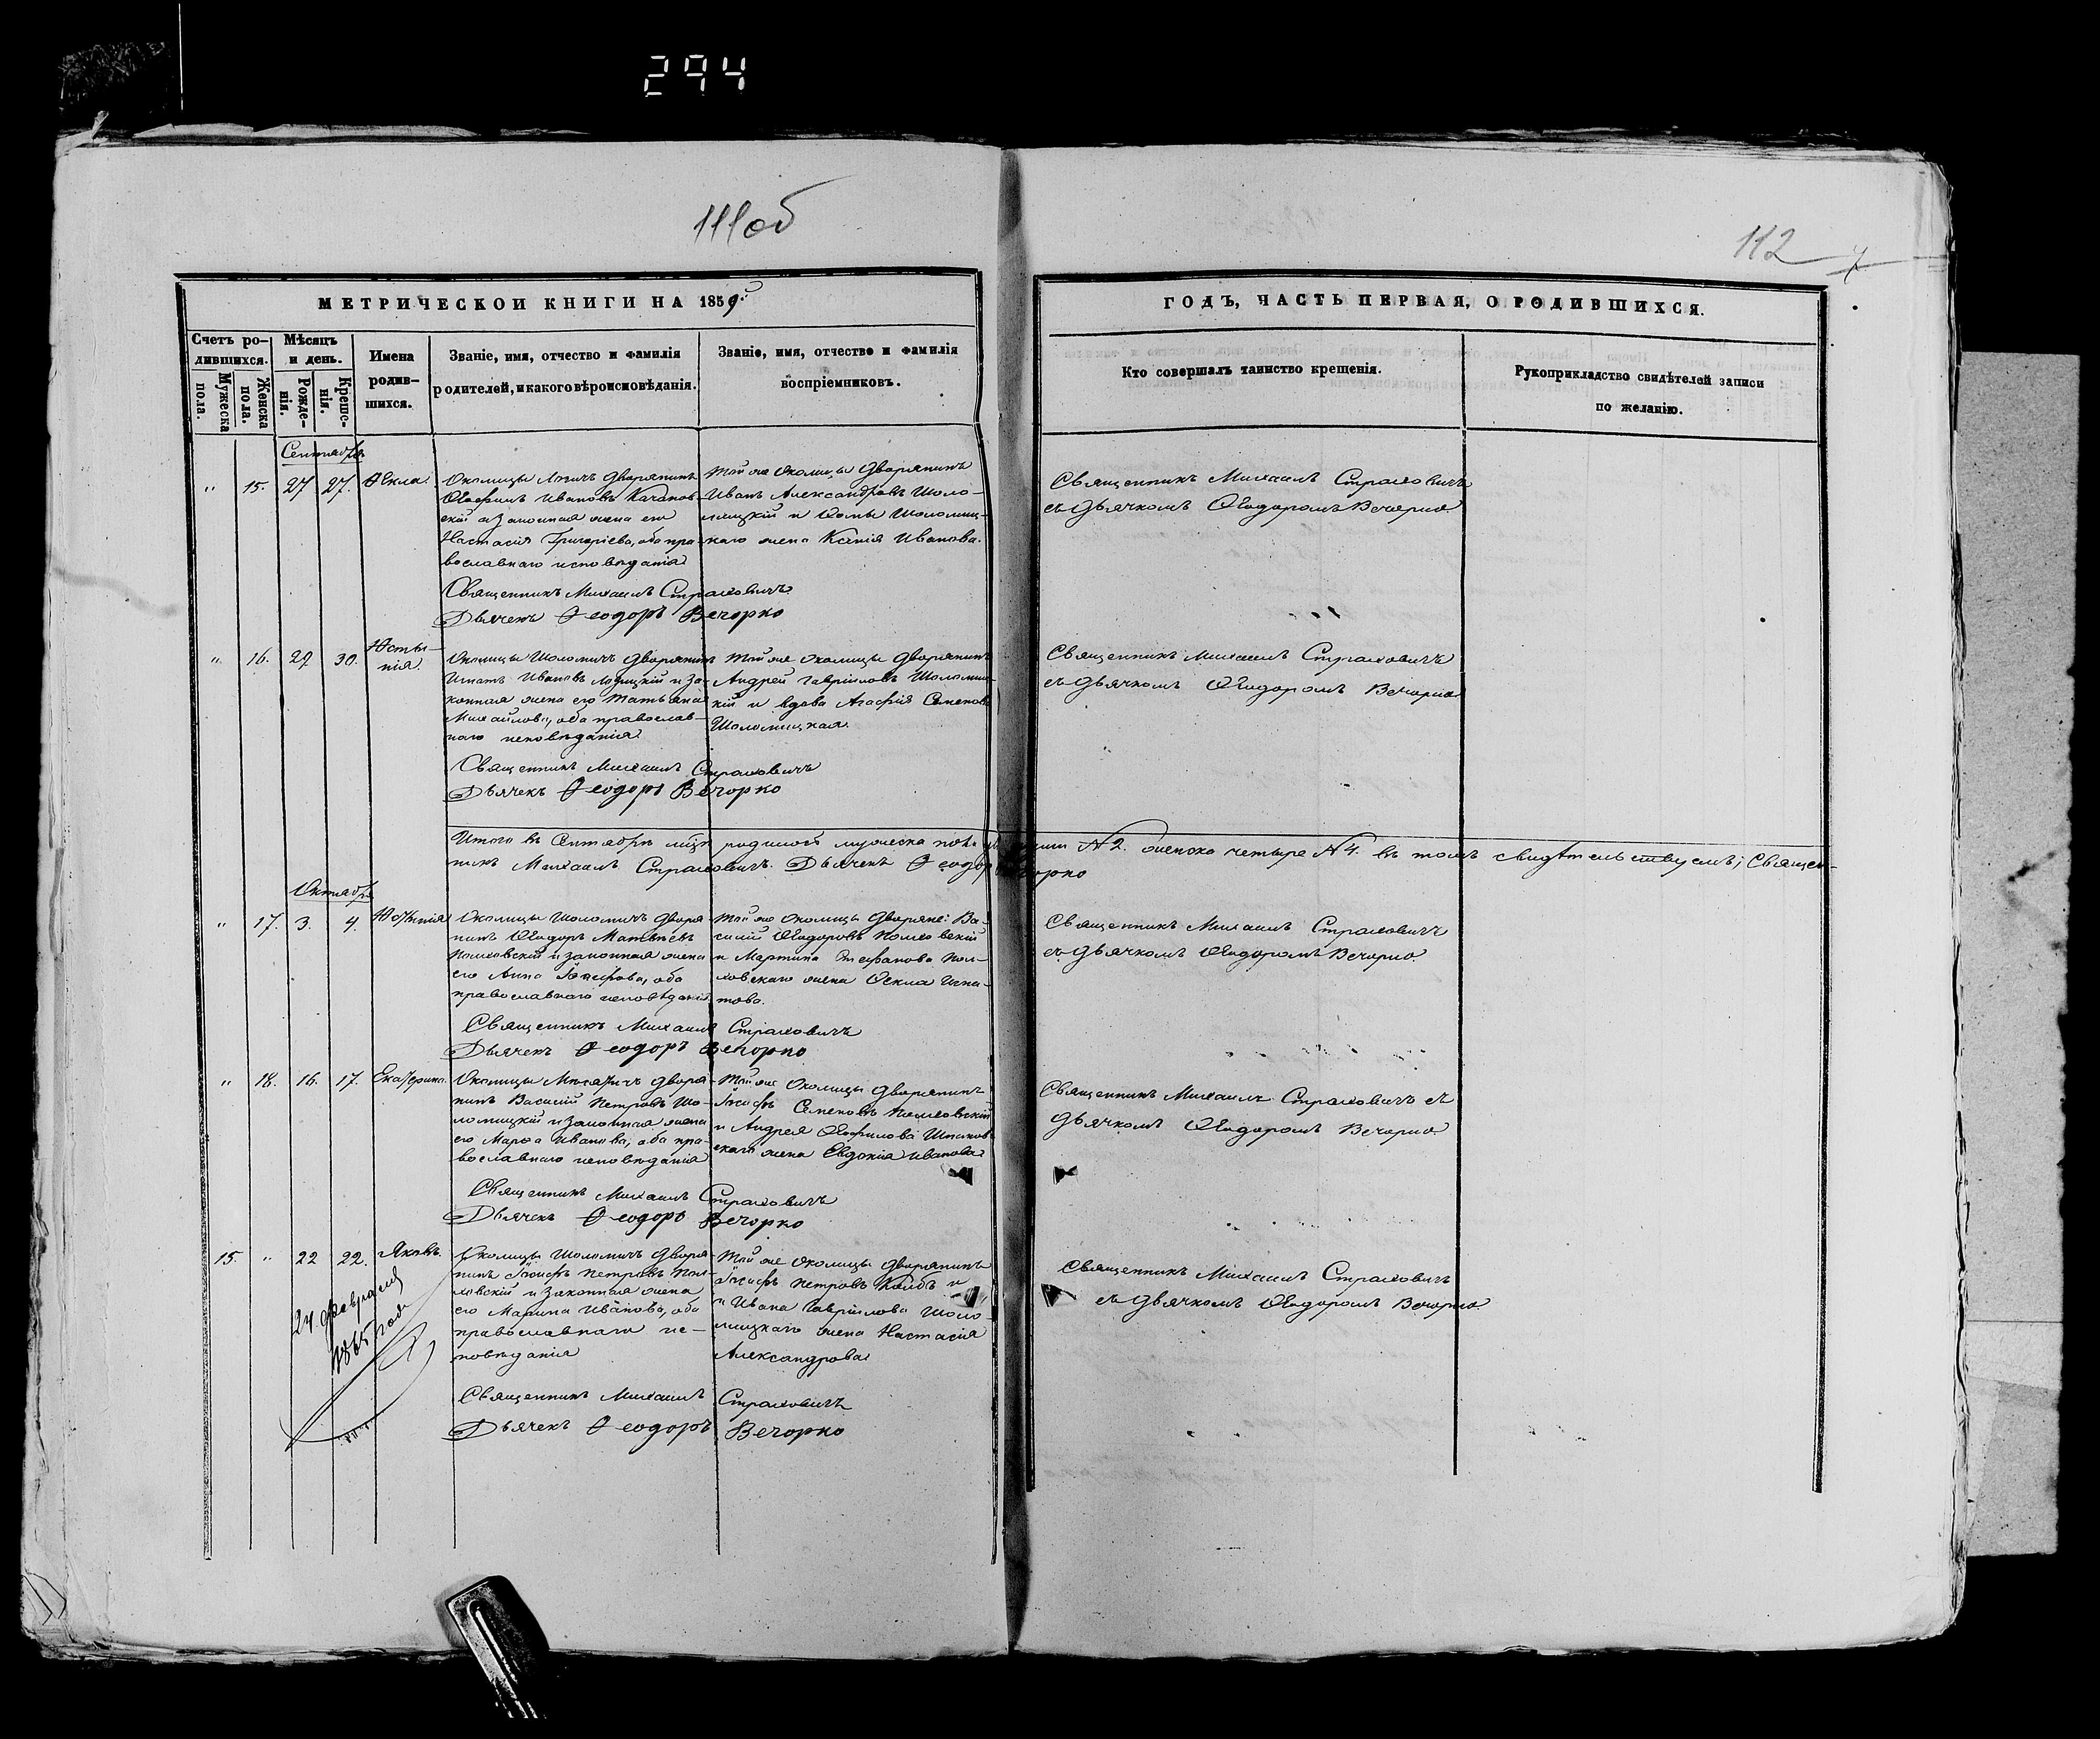 294
111об
112
МЕТРИЧЕСКОЙ КНИГИ НА 1859й
Счетъ ро-
дившихся.
Мѣсяцъ
и день.
Мужеска
пола.
Женска
пола.
Рожде-
нія.
Креще-
нія.
Имена
родив-
шихся.
Званіе, имя, отчество и фамилія
родителей, и какого вѣроисповѣданія.
Званіе, имя, отчество и фамилія
воспріемниковъ.
ГОДЪ, ЧАСТЬ ПЕРВАЯ, О РОДИВШИХСЯ.
Кто совершалъ таинство крещенія.
Рукоприкладство свидѣтелей записи
по желанію.
Сентябрь
" 15. 27 27. Ѳекла
Околицы дворянинъ
Ѳеофилъ Ивановъ
и законная жена его
Настасія Григоріева, оба пра-
вославнаго исповѣданія
Той же околицы дворянинъ
Иванъ Александровъ Шоло-
мицкій и Ѳомы Шоломиц-
каго жена Ксенія Иванова.
Священникъ Михаилъ Страховичъ
съ дьячкомъ Ѳеодоромъ Вечорко
Священникъ Михаилъ Страховичъ
Дьячекъ Ѳеодоръ Вечорко
" 16. 27 30. Юсты-
нія
Околицы Шоломичъ дворянинъ
Игнатъ Ивановъ и за-
конная жена его Татьяна
Михайлова, оба православ-
наго исповѣданія
Той же околицы дворянинъ
Андрей Гавріиловъ Шоломиц-
кій и вдова Агафія Семенова
Шоломицкая.
Священникъ Михаилъ Страховичъ
съ дьячкомъ Ѳеодоромъ Вечорко
Священникъ Михаилъ Страховичъ
Дьячекъ Ѳеодоръ Вечорко
Итого въ Сентябрѣ родилось мужеска пола № 2. женска четыре № 4. въ томъ свидѣтельствуемъ; Священ-
никъ Михаилъ Страховичъ. Дьячекъ Ѳеодоръ Вечорко
Октябрь
" 17. 3. 4.
Околицы Шоломичъ дворя-
нинъ Ѳеодоръ Матвѣевъ
и законная жена
его Анна Іосифова, оба
православнаго исповѣданія
Той же околицы дворяне: Ва-
силій Ѳеодоровъ
и Мартина Стефанова Пол-
ховскаго жена Ѳекла Игна-
това.
Священникъ Михаилъ Страховичъ
съ дьячкомъ Ѳеодоромъ Вечорко
Священникъ Михаилъ Страховичъ
Дьячекъ Ѳеодоръ Вечорко
" 18. 16. 17. Екатерина.
Околицы дворя-
нинъ Василій Петровъ Шо-
ломицкій и законная жена
его Марѳа Иванова, оба пра-
вославнаго исповѣданія
Той же околицы дворянинъ
Іосифъ Семеновъ
и Андрея Ѳеофилова
скаго жена Евдокія Иванова
Священникъ Михаилъ Страховичъ съ
дьячкомъ Ѳеодоромъ Вечорко
Священникъ Михаилъ Страховичъ
Дьячекъ Ѳеодоръ Вечорко
15. " 22 22. Яковъ.
Околицы Шоломичъ дворя-
нинъ Іосифъ Петровъ Пол-
ховскій и законная жена
его Марина Иванова, оба
православнаго ис-
повѣданія
Той же околицы дворянинъ
Іосифъ Петровъ и
и Ивана Гавріилова Шоло-
мицкаго жена Настасія
Александрова
Священникъ Михаилъ Страховичъ
съ дьячкомъ Ѳеодоромъ Вечорко
24 февраля
1865 года
Священникъ Михаилъ Страховичъ
Дьячекъ Ѳеодоръ Вечорко